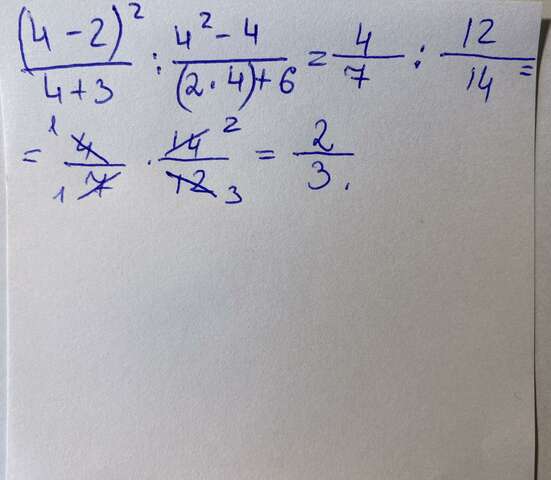 (4-2)²/4+3 : 4²-4/(2·4)+6 = 4/7 : 12/14 =
= 1 4/1 7 · 14 2/12 3 = 2/3.